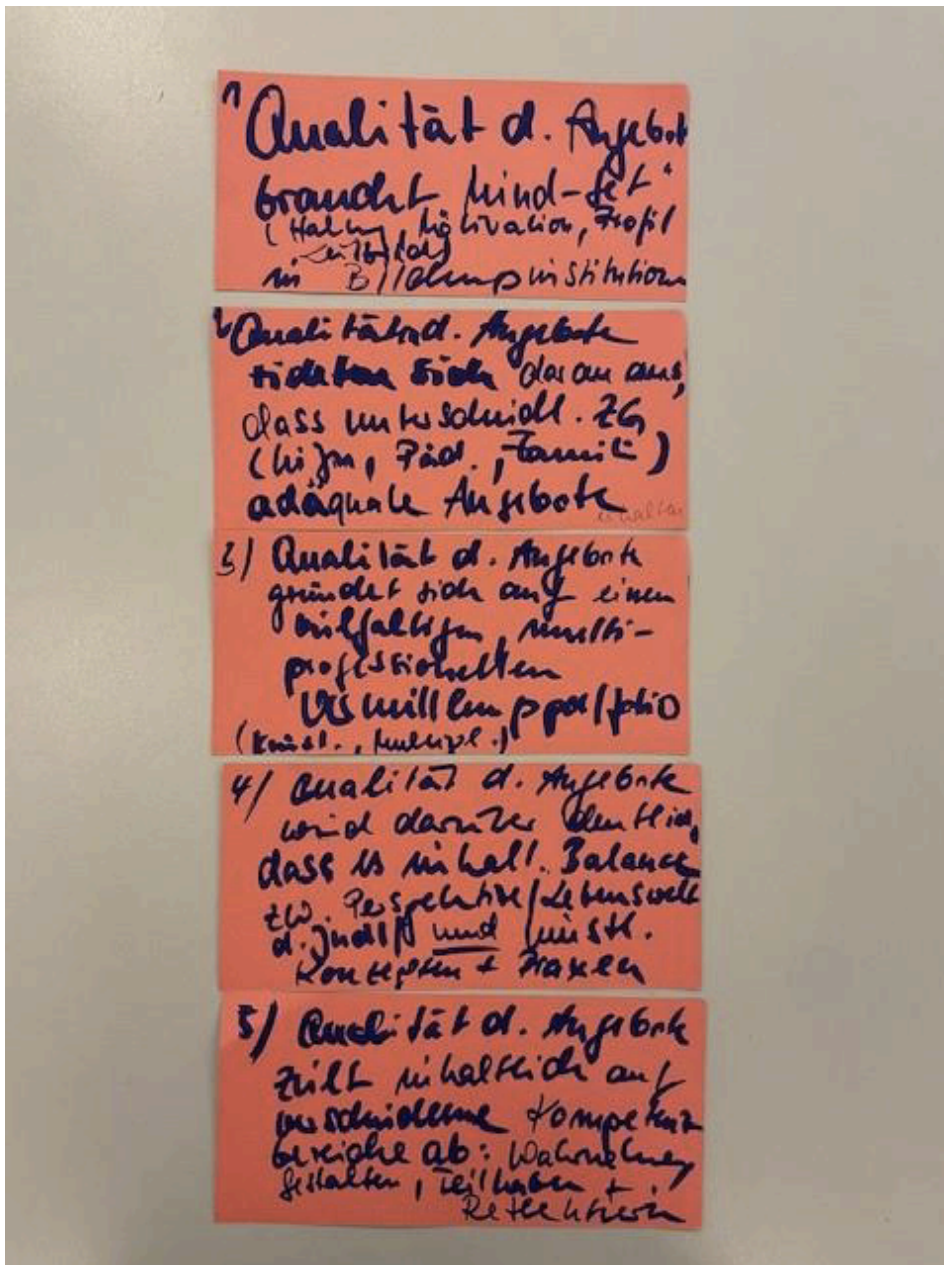 1 Qualität d. Angebote
braucht Mind-Set"
(Haltung, Motivation, Profil
Leitbild)
in Bildungsinstitutionen
2 Qualität d. Angebote
richten sich daran aus,
dass unterschiedl. ZG
(Ki/Ju, Päd., Familie)
adäquate Angebote
erhalten
3/ Qualität d. Angebote
gründet sich auf einem
vielfältigen, multi-
professionellen
Vermittlungsportfolio
(Künstl.,
4/ Qualität d. Angebote
wird darüber deutlich,
dass es inhaltl. Balance
zw. Perspektive/Lebenswelt
d. und künstl.
Konzepten + Praxen
5/ Qualität d. Angebote
zielt inhaltlich auf
verschiedene Kompetenz
bereiche ab: Wahrnehmung
gestalten, Teilhaben +
Reflektieren